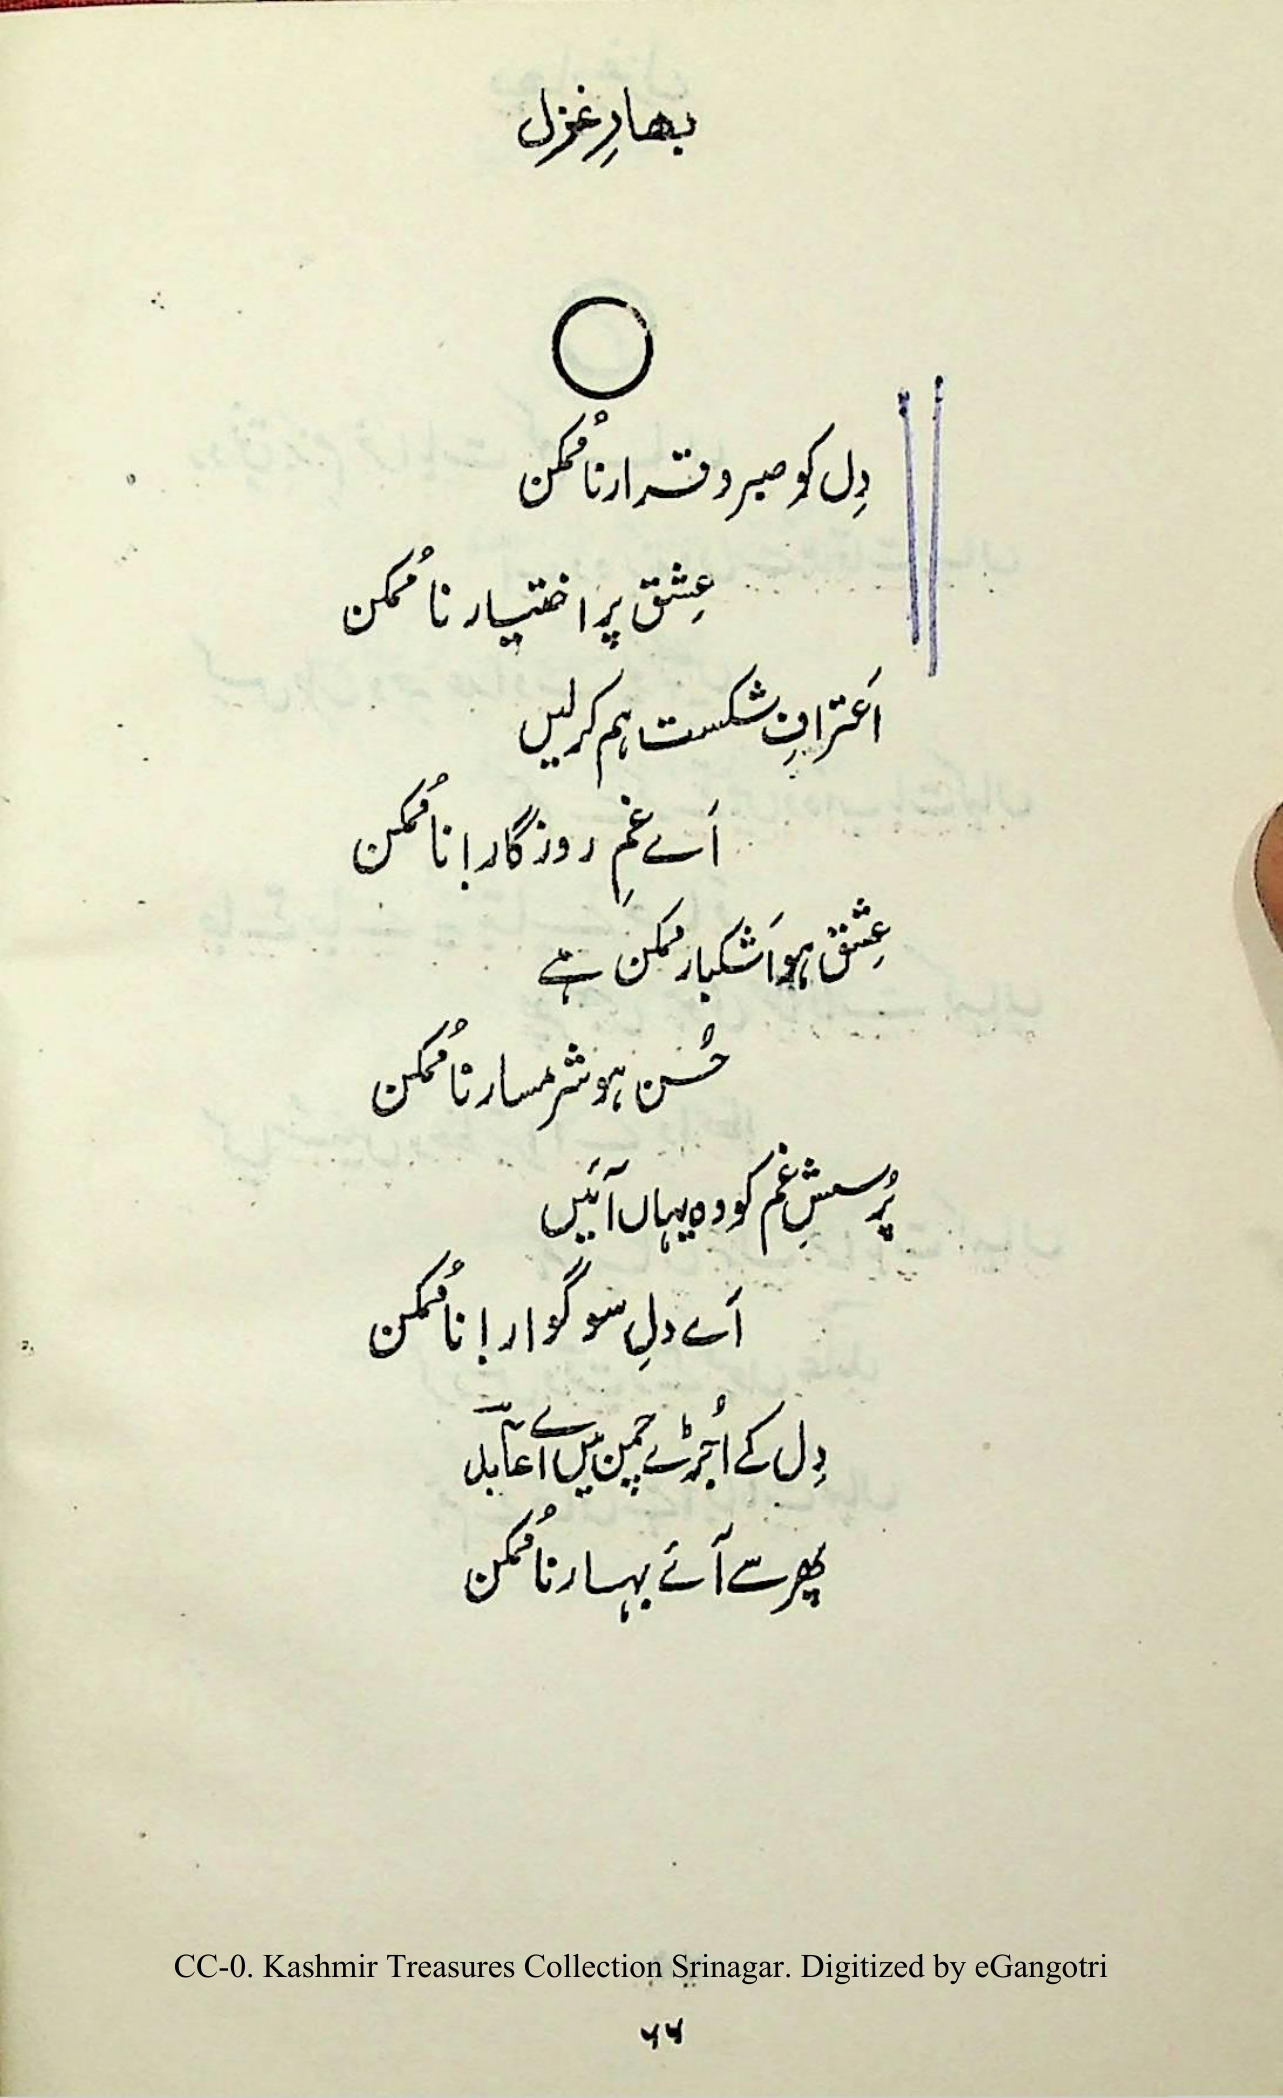 بھارِ غزل
دِل کو صبر و قرار نامُمکن
عِشق پر اختیار نامُمکن
اَعترافِ شکست ہم کرلیں
اَے غمِ روزگار! نامُمکن
عِشق ہو اَشکبار ممکن ہے
حُسن ہو شرمسار نامُمکن
پُرسشِ غم کو وہ یہاں آئیں
اَے دلِ سوگوار! نامُمکن
دِل کے اُجڑے چمن میں اے عابدؔ
پھر سے آئے بہار نامُمکن
CC-0. Kashmir Treasures Collection Srinagar. Digitized by eGangotri
۶۶